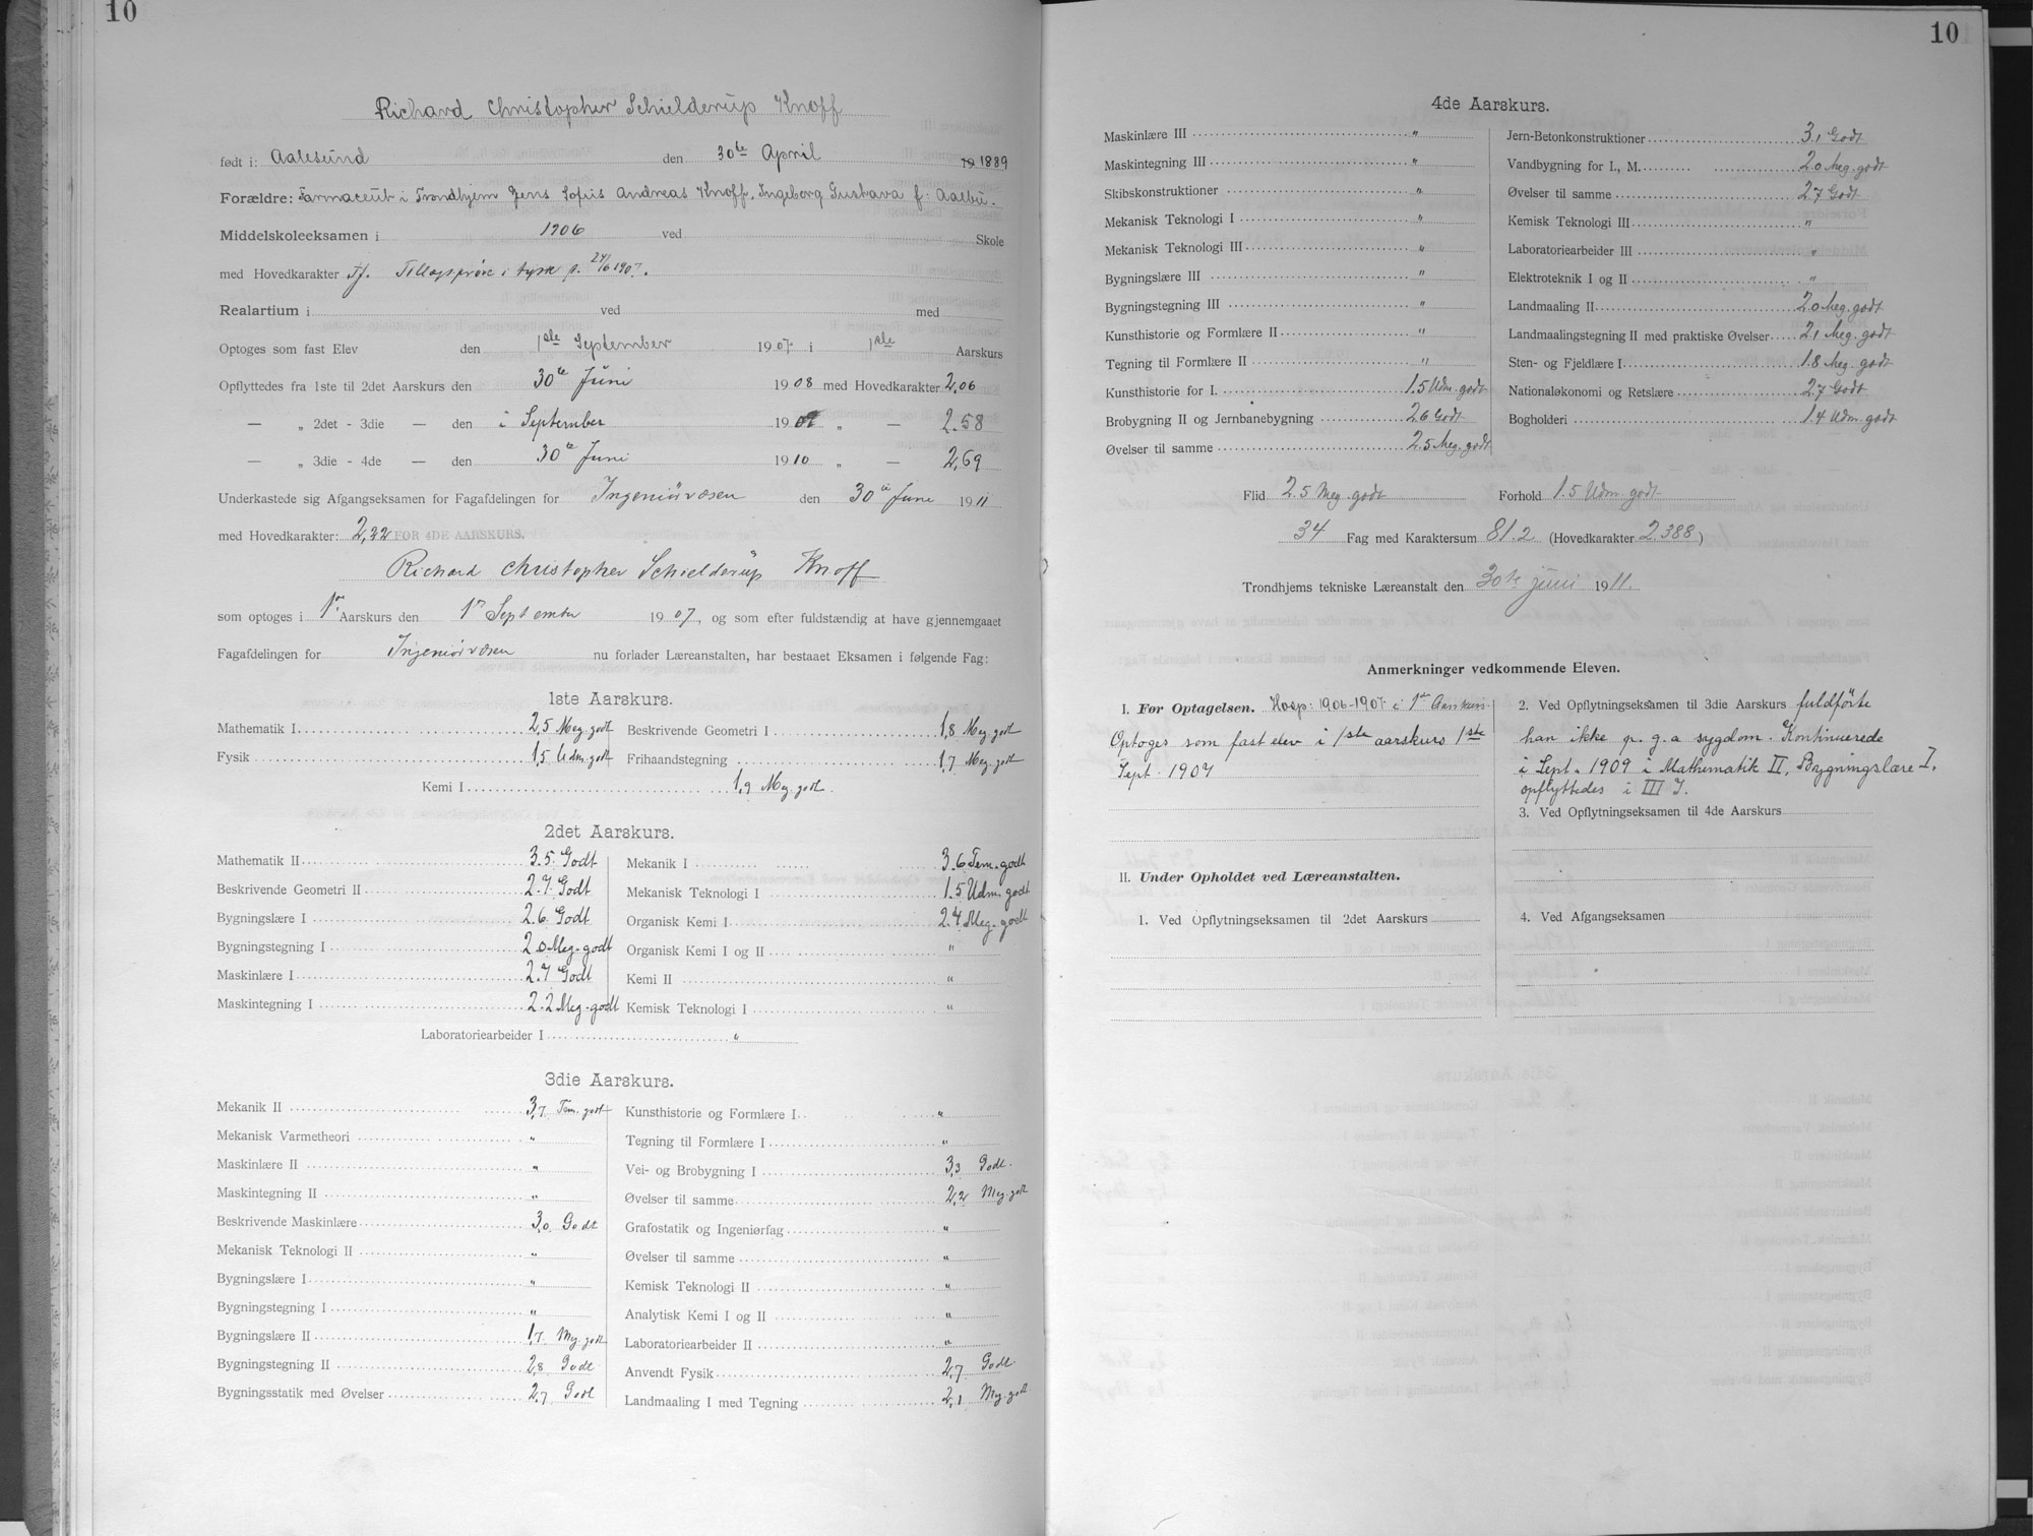 10
Richard Christopher Schielderup Knoff
født i: Aalesund den 30te April 19 1889
Forældre: Farmaceut i Trondhjem Jens Sofus Andreas Knoff, Ingeborg Gustava f: Aalbu.
Middelskoleeksamen i 1906 ved Skole
med Hovedkarakter Tf. Tillægsprøve i tysk p. 24/6 1907.
Realartium i ved med
Optoges som fast Elev den 1ste September 1907 i 1ste Aarskurs
Opflyttedes fra 1ste til 2det Aarskurs den 30te Juni 1908 med Hovedkarakter 2,06
— „ 2det - 3die — den i September 1909 „ — 2.58
— „ 3die - 4de — den 30te Juni 1910 „ — 2,69
Underkastede sig Afgangseksamen for Fagafdelingen for Ingeniørvæsen den 30te Juni 1911
med Hovedkarakter: 2,22 FOR 4DE AARSKURS.
Richard Christopher Schielderup Knoff
som optoges i 1ste Aarskurs den 1ste September 1907, og som efter fuldstændig at have gjennemgaaet
Fagafdelingen for Ingeniørvæsen nu forlader Læreanstalten, har bestaaet Eksamen i følgende Fag:
1ste Aarskurs.
Mathematik I 2,5 Meg. godt Beskrivende Geometri I 1,8 Meg. godt
Fysik 1,5 Udm. godt Frihaandstegning 1,7 Meg. godt
Kemi I 1,9 Meg. godt.
2det Aarskurs.
Mathematik II 3.5 Godt Mekanik I 3.6 Tem. godt
Beskrivende Geometri II 2.7 Godt Mekanisk Teknologi I 1.5 Udm. godt
Bygningslære I 2.6 Godt Organisk Kemi I 2.4 Meg. godt
Bygningstegning I 2.0 Meg. godt Organisk Kemi I og II "
Maskinlære I 2.7 Godt Kemi II "
Maskintegning I 2.2 Meg. godt Kemisk Teknologi I "
Laboratoriearbeider I "
3die Aarskurs.
Mekanik II 3,7 Tem. godt Kunsthistorie og Formlære I "
Mekanisk Varmetheori " Tegning til Formlære I "
Maskinlære II " Vei- og Brobygning I 3,3 Godt.
Maskintegning II " Øvelser til samme 2,2 Meg. godt
Beskrivende Maskinlære 3,0 Godt Grafostatik og Ingeniørfag "
Mekanisk Teknologi II " Øvelser til samme "
Bygningslære I " Kemisk Teknologi II "
Bygningstegning I " Analytisk Kemi I og II "
Bygningslære II 1,7 Meg. godt Laboratoriearbeider II "
Bygningstegning II 2,8 Godt Anvendt Fysik 2,7 Godt
Bygningsstatik med Øvelser 2,7 Godt Landmaaling I med Tegning 2,1 Meg. godt
10
4de Aarskurs.
Maskinlære III " Jern-Betonkonstruktioner 3,1 Godt
Maskintegning III " Vandbygning for I., M. 2.0 Meg. godt
Skibskonstruktioner " Øvelser til samme 2.7 Godt
Mekanisk Teknologi I " Kemisk Teknologi III "
Mekanisk Teknologi III " Laboratoriearbeider III "
Bygningslære III " Elektroteknik I og II "
Bygningstegning III " Landmaaling II 2.0 Meg. godt
Kunsthistorie og Formlære II " Landmaalingstegning II med praktiske Øvelser 2,1 Meg. godt
Tegning til Formlære II " Sten- og Fjeldlære I 1.8 Meg. godt
Kunsthistorie for I. 1.5 Udm. godt Nationaløkonomi og Retslære 2.7 Godt
Brobygning II og Jernbanebygning 2.6 Godt Bogholderi 1.4 Udm. godt
Øvelser til samme 2.5 Meg. godt
Flid 2.5 Meg. godt Forhold 1.5 Udm. godt
34 Fag med Karaktersum 81.2 (Hovedkarakter 2.388)
Trondhjems tekniske Læreanstalt den 30te juni 1911.
Anmerkninger vedkommende Eleven.
I. Før Optagelsen. Hosp: 1906-1907 i 1ste Aarskurs.
Optoges som fast elev i 1ste aarskurs 1ste
Sept. 1907
II. Under Opholdet ved Læreanstalten.
1. Ved Opflytningseksamen til 2det Aarskurs
2. Ved Opflytningseksamen til 3die Aarskurs fuldförte
han ikke p. g. a sygdom. Kontinuerede
i Sept. 1909 i Mathematik II, Bygningslære I.
opflyttedes i III I.
3. Ved Opflytningseksamen til 4de Aarskurs
4. Ved Afgangseksamen